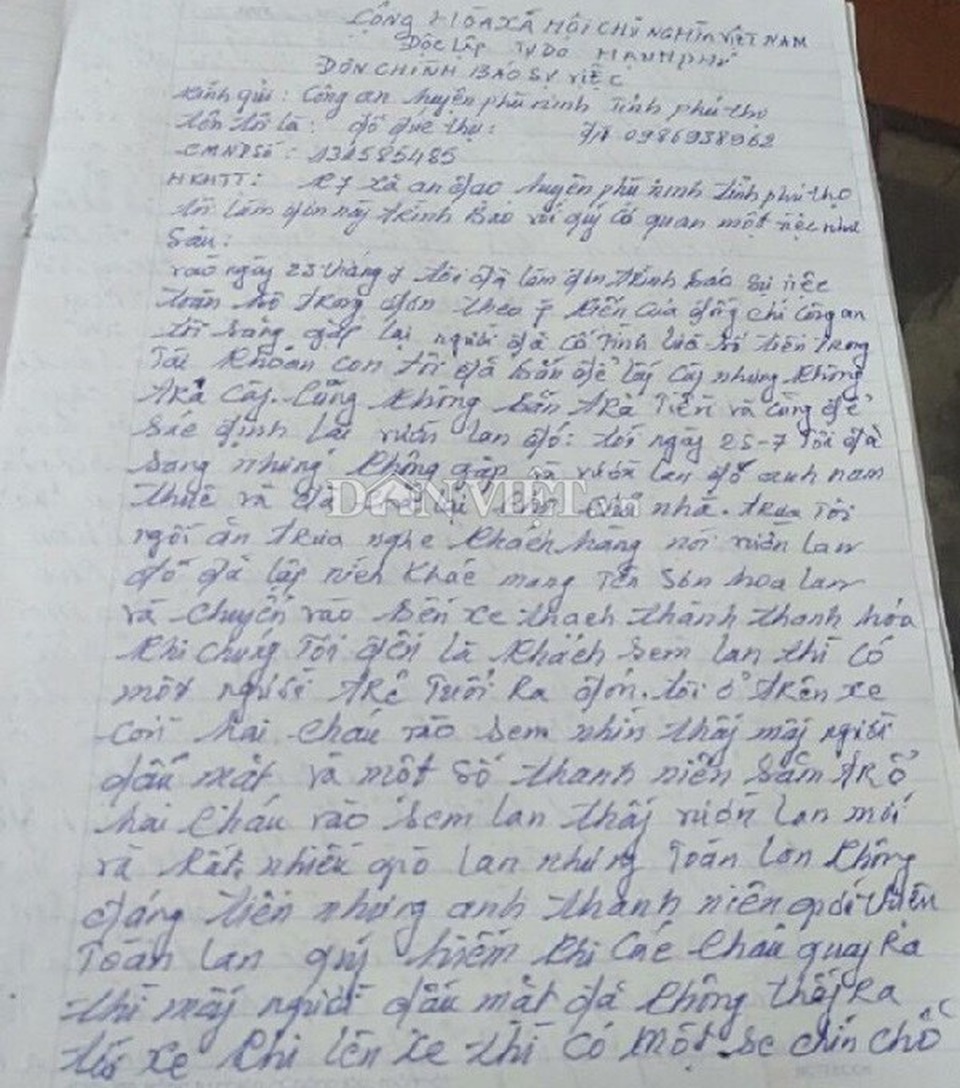 CỘNG HÒA XÃ HỘI CHỦ NGHĨA VIỆT NAM
Độc Lập Tự Do Hạnh phú
ĐƠN CHÌNH BÁO SỰ VIỆC
Kính gửi: Công an huyện phù ninh Tỉnh phú thọ
tên tôi là: đỗ đức thụ: 0986938962
CMND số: 131585485
HKTT: K7 xã an đạo huyện phù ninh tỉnh phú thọ
tôi làm đơn này trình Báo với quý cơ quan một việc như
Sau:
vào ngày 23 tháng 7 tôi đã làm đơn trình báo sự việc
toàn bộ trong đơn theo ý kiến của đồng chí công an
tôi sang gặp lại người đã cố tình lừa số tiền trong
Tài khoản con tôi đã bán để lấy cây nhưng không
trả cây. Cũng không trả Tiền và cũng để
sác định lại vườn lan đó: tới ngày 25-7 Tôi đã
sang nhưng không gặp và vườn lan đó anh nam
thuê và đã trả lại cho chủ nhà. trưa Tôi
ngồi ăn trưa nghe khách hàng nói vườn lan
đó đã lập ních khác mang Tên Sơn hoa lan
và chuyển vào bến xe thạch thành thanh hóa
khi chúng Tôi đến là khách sem lan thì có
một người trẻ Tuổi Ra đón. tôi ở trên xe
còn hai cháu vào sem nhìn thấy mấy người
dấu mặt và một số thanh niên săm trổ
hai cháu vào sem lan thấy vườn lan mới
và rất nhiều giò lan nhưng toàn lan không
đáng tiền nhưng anh thanh niên giới thiệu
Toàn lan quý hiếm khi các cháu quay Ra
thì mấy người dấu mặt đã không thấy ra
tới xe khi lên xe thì có một se chín chỗ
DÂN VIỆT.vn